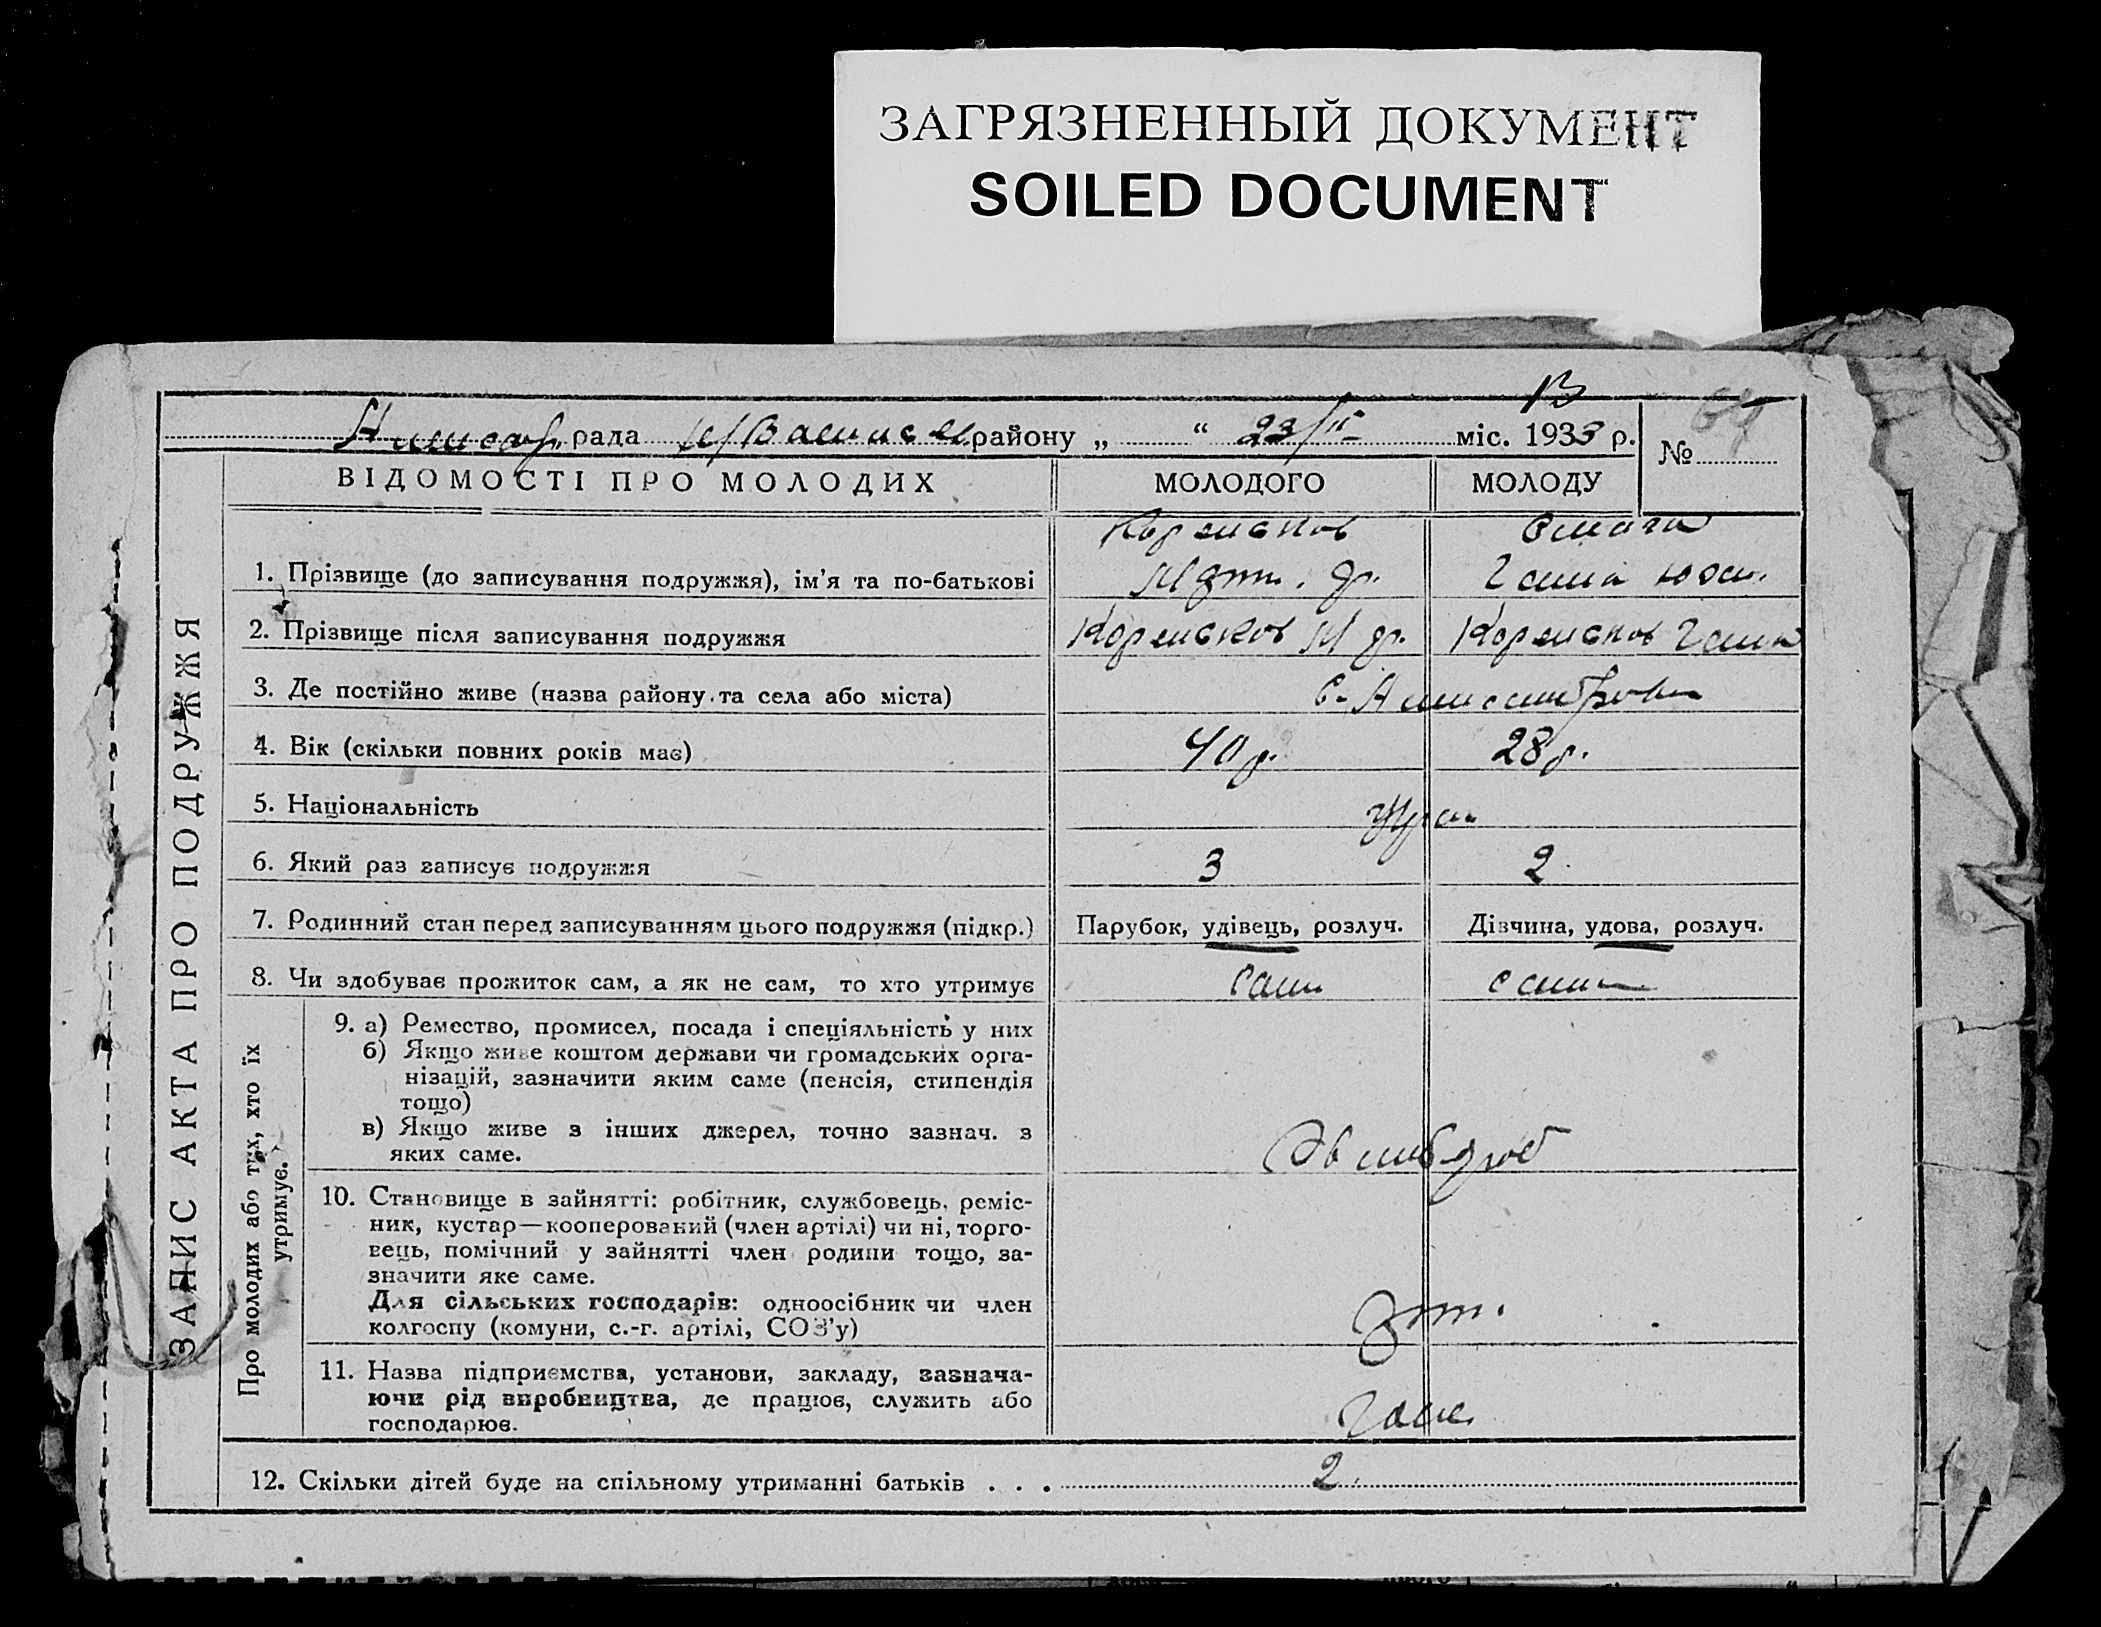 ЗАГРЯЗНЕННЫЙ ДОКУМЕНТ
SOILED DOCUMENT
рада району „ “ 23/II міс. 1933 р. № 64
ВІДОМОСТІ ПРО МОЛОДИХ МОЛОДОГО МОЛОДУ
ЗАПИС АКТА ПРО ПОДРУЖЖЯ
1. Прізвище (до записування подружжя), ім’я та по-батькові
2. Прізвище після записування подружжя
3. Де постійно живе (назва району та села або міста)
4. Вік (скільки повних років має) 40 р. 28 р.
5. Національність Укр.
6. Який раз записує подружжя 3 2
7. Родинний стан перед записуванням цього подружжя (підкр.) Парубок, удівець, розлуч. Дівчина, удова, розлуч.
8. Чи здобуває прожиток сам, а як не сам, то хто утримує Сам сама
Про молодих або тих, хто їх
утримує.
9. а) Ремество, промисел, посада і спеціяльність у них
б) Якщо живе коштом держави чи громадських орга-
нізацій, зазначити яким саме (пенсія, стипендія
тощо)
в) Якщо живе з інших джерел, точно зазнач. з
яких саме.
10. Становище в зайнятті: робітник, службовець, реміс-
ник, кустар—кооперований (член артілі) чи ні, торго-
вець, помічний у зайнятті член родини тощо, за-
значити яке саме.
Для сільських господарів: одноосібник чи член
колгоспу (комуни, с.-г. артілі, СОЗ’у)
11. Назва підприємства, установи, закладу, зазнача-
ючи рід виробництва, де працює, служить або
господарює.
12. Скільки дітей буде на спільному утриманні батьків . . . 2.